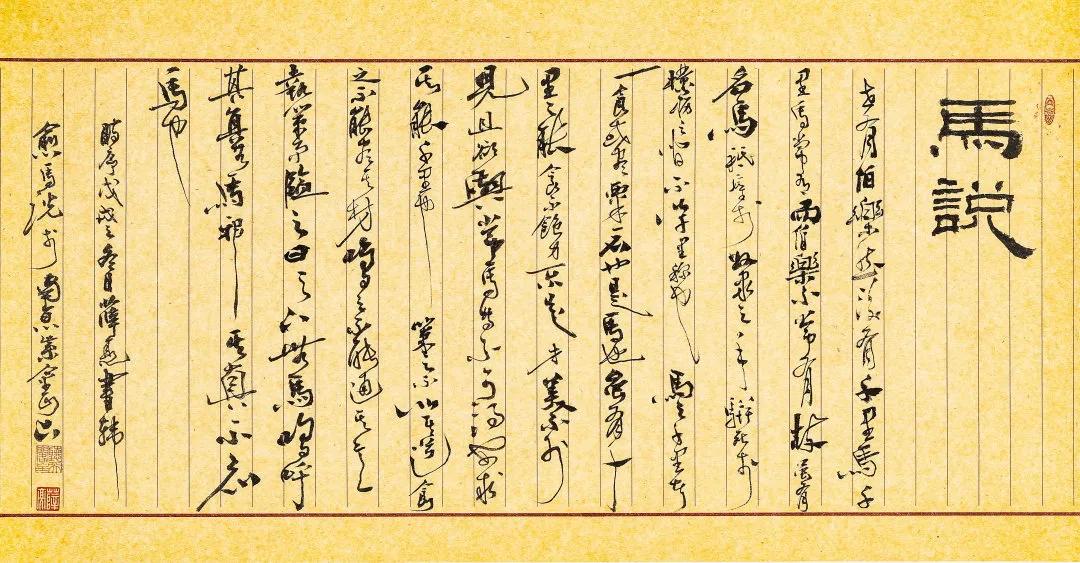 馬說
世有伯樂然後有千里馬千
里馬常有而伯樂不常有故雖有
名馬祗辱於奴隸之手駢死於
槽櫪之間不以千里稱也馬之千里者
一食或盡粟一石也是馬也雖有千
里之能食不飽力不足才美不外
見且欲與常馬等不可得安求
其能千里也策之不以其道食
之不能盡其材鳴之不能通其意
執策而臨之曰天下無馬嗚呼
其真無馬邪其真不知
馬也
時序戊戌之冬月薛書韓
愈馬說於南京紫金山